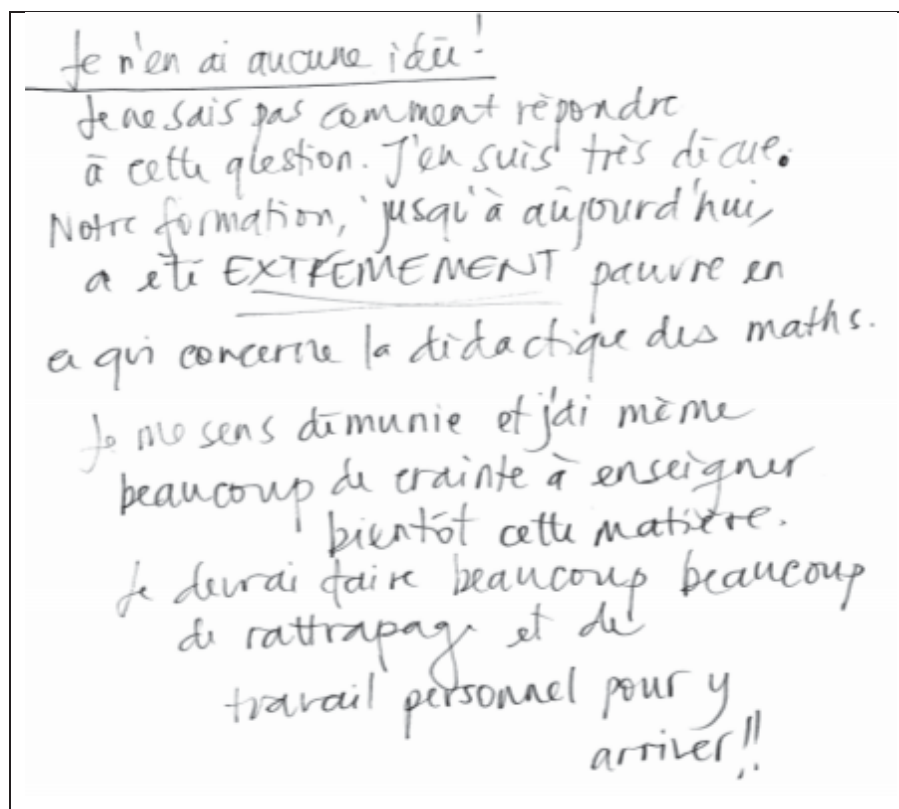 Je n'en ai aucune idée !
Je ne sais pas comment répondre
à cette question. J'en suis très déçue.
Notre formation, jusqu'à aujourd'hui,
a été EXTREMEMENT pauvre en
ce qui concerne la didactique des maths.
Je me sens démunie et j'ai même
beaucoup de crainte à enseigner
bientôt cette matière.
Je devrai faire beaucoup beaucoup
de rattrapage et de
travail personnel pour y
arriver !!